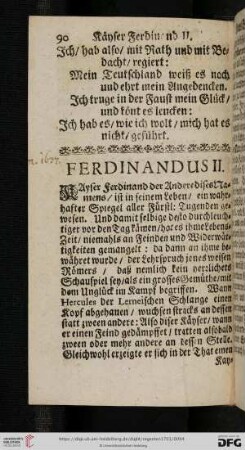 90 Käyser Ferdinand II.
Ich/ hab also/ mit Rath und mit Be-
dacht/ regiert:
Mein Teutschland weiß es noch
und ehrt mein Angedencken.
Ich truge in der Faust mein Glück/
und kont es lencken:
Ich hab es/ wie ich wolt/ mich hat es
nicht/ geführt.
FERDINANDUS II.
KAyser Ferdinand der Andere dises Na-
mens/ ist in seinem Leben/ ein wahr-
haffter Spiegel aller Fürstl. Tugenden ge-
wesen. Und damit selbige desto durchleuch-
tiger vor den Tag kämen/ hat es ihme Lebens-
Zeit/ niemahls an Feinden und Widerwär-
tigkeiten gemangelt: da dann an ihme be-
währet wurde/ der Lehrspruch jenes weisen
Römers/ daß nemlich kein herrlichers
Schauspiel sey/ als ein grosses Gemüthe mit
dem Unglück im Kampf begriffen. Wann
Hercules der Lerneischen Schlange einen
Kopf abgehauen/ wuchsen stracks an dessen
statt zween andere: Also diser Käyser/ wann
er einen Feind gedämpffet/ tratten alsobald
zween oder mehr andere an dessen Stelle.
Gleichwohl erzeigte er sich in der That einen
Käy-
UNIVERSITÄTS-
BIBLIOTHEK
HEIDELBERG
Gefördert durch die
DFG